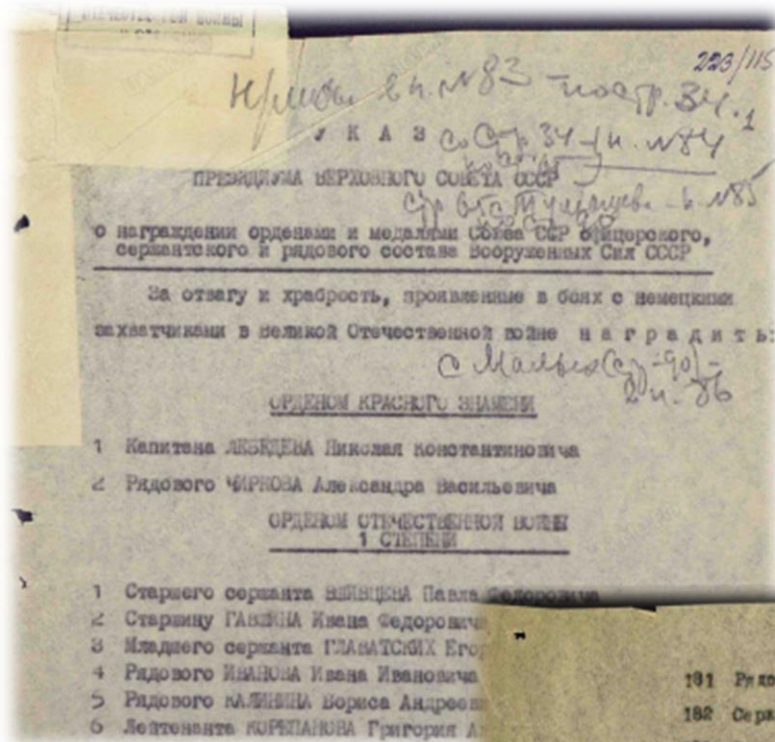 ОТЕЧЕСТВЕННОЙ ВОЙНЫ
223/115
в к. №83 - по стр. 34.
У К А З
со стр 34 - к. №84
ПРЕЗИДИУМА ВЕРХОВНОГО СОВЕТА СССР
к. №85
о награждении орденами и медалями Союза ССР офицерского,
сержантского и рядового состава Вооруженных Сил СССР
За отвагу и храбрость, проявленные в боях с немецкими
захватчиками в Великой Отечественной войне н а г р а д и т ь:
с
к. 86
ОРДЕНОМ КРАСНОГО ЗНАМЕНИ
1 Капитана ЛЕБЕДЕВА Николая Константиновича
2 Рядового ЧИРКОВА Александра Васильевича
ОРДЕНОМ ОТЕЧЕСТВЕННОЙ ВОЙНЫ
1 СТЕПЕНИ
1 Старшего сержанта Павла Федоровича
2 Старшину Ивана Федоровича
3 Младшего сержанта ГЛАВАТСКИХ Егор
4 Рядового ИВАНОВА Ивана Ивановича
5 Рядового КАЛИНИНА Бориса Андрееви
6 Лейтенанта КОРЕПАНОВА Григория А
181 Рядо
182 Серж